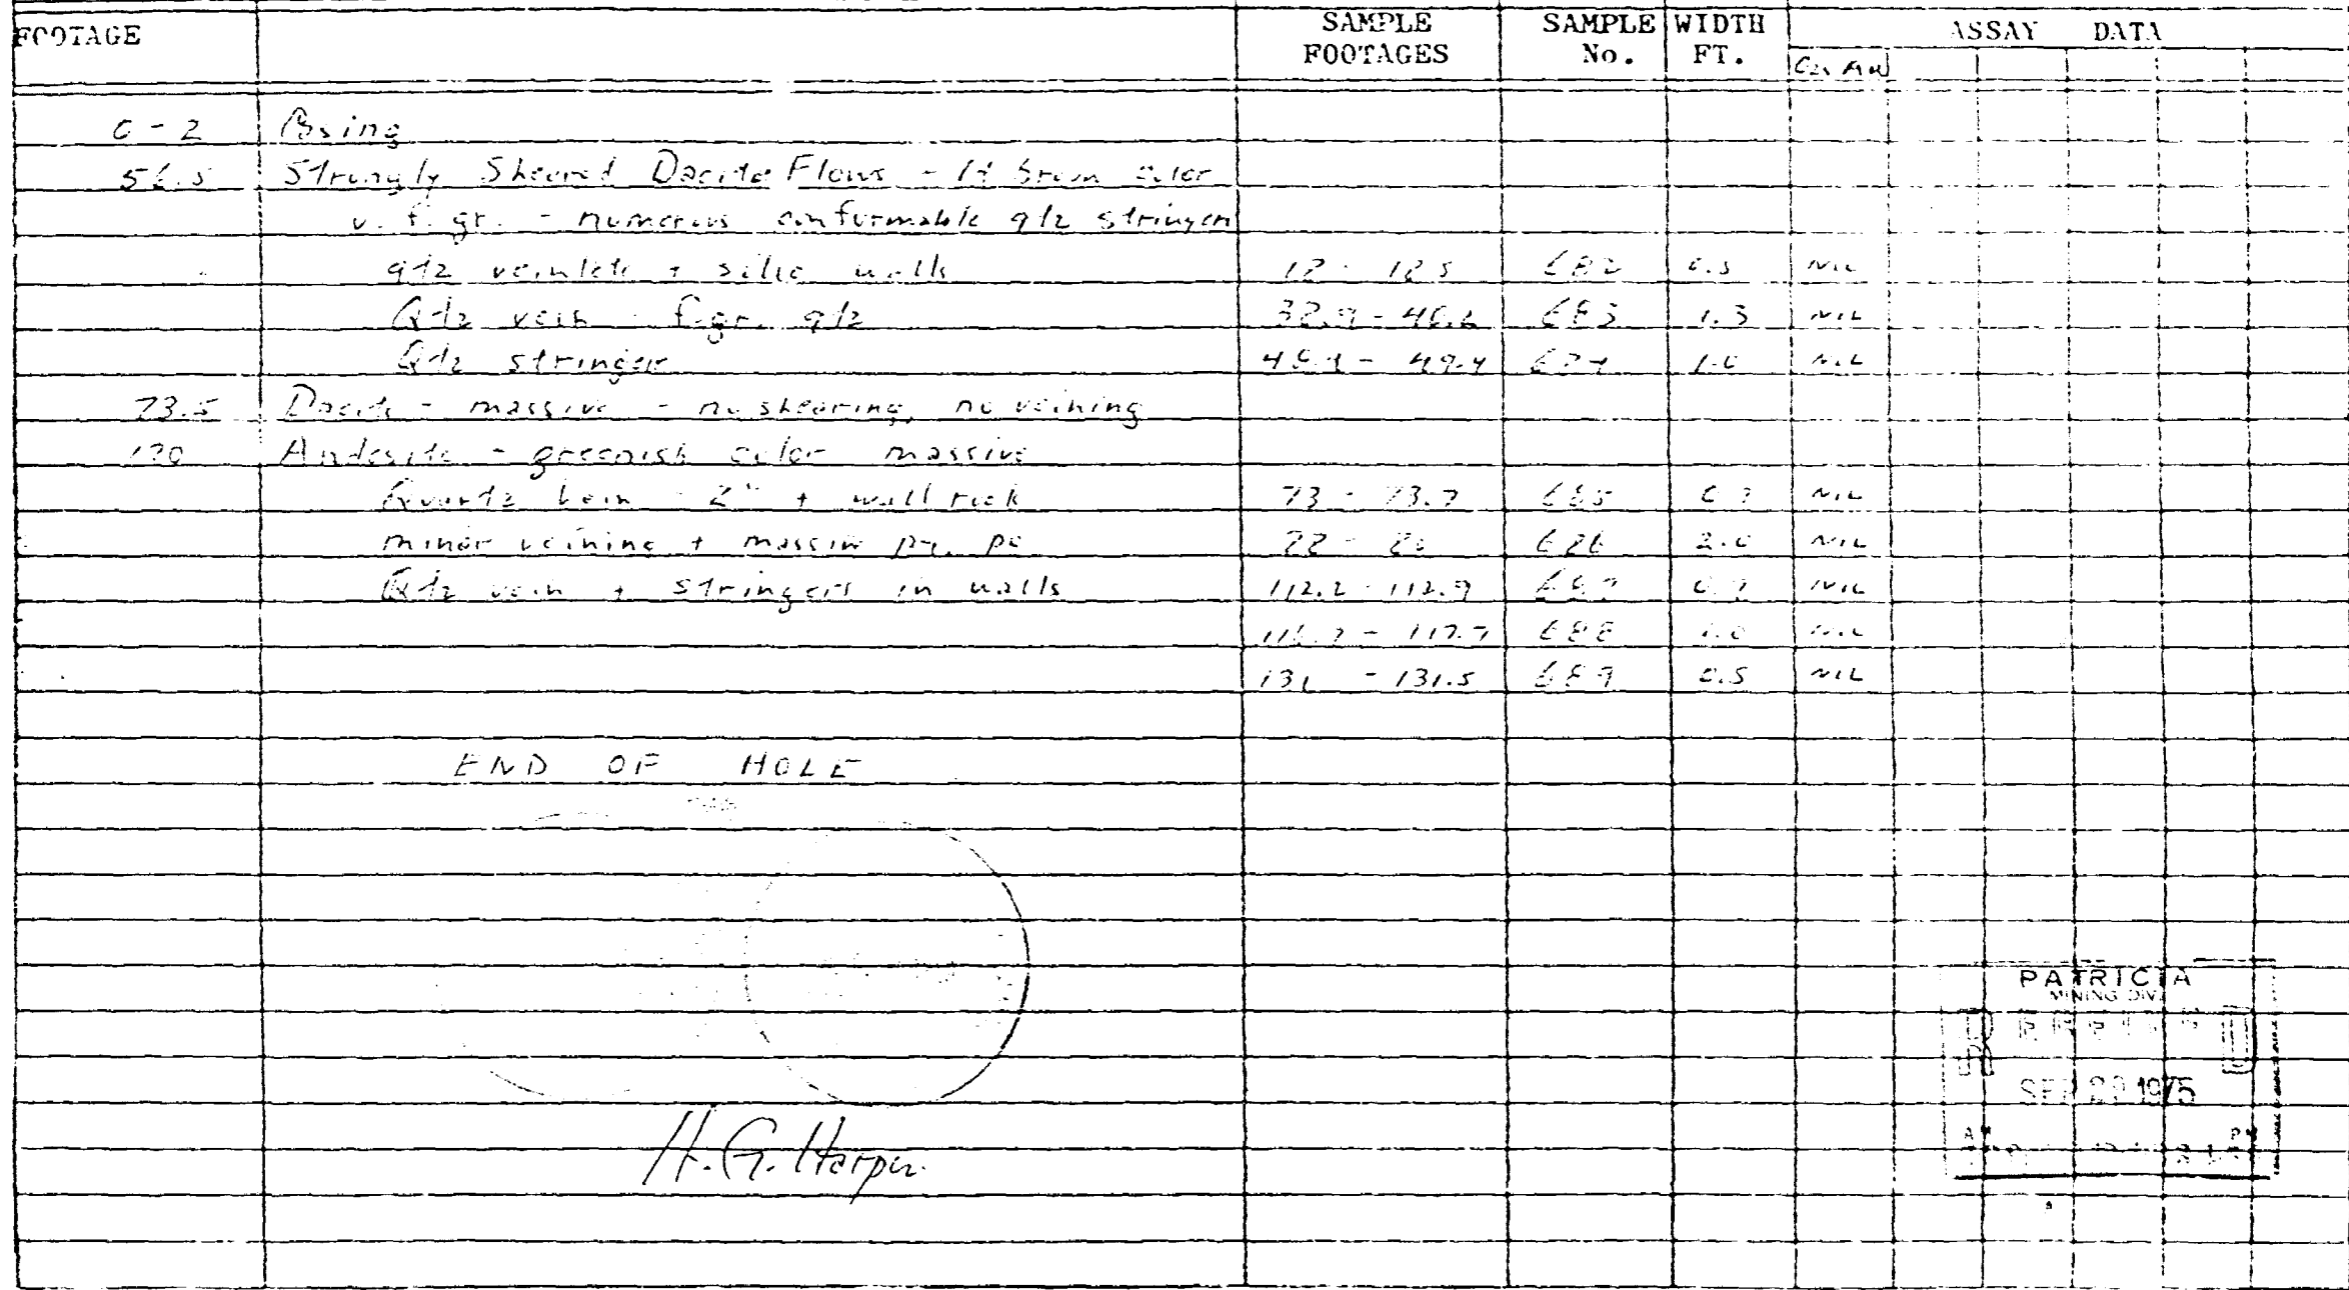 FOOTAGE SAMPLE FOOTAGES SAMPLE No. WIDTH FT. ASSAY DATA
Au
0 - 2
56.5 Strongly Sheared Dacite Flows - lt brown color
v. f. gr. - numerous conformable qtz stringers
qtz veinlets + silic walls 12 - 12.5 682 0.5 NIL
Qtz vein - f.gr. qtz 683 1.3 NIL
Qtz stringer 48.4 - 49.4 684 1.0 NIL
73.5 Dacite - massive - no shearing, no veining
Andesite - greenish color massive
Quartz vein - 2" + wall rock 73 - 73.7 685 0.7 NIL
minor veining + massive py, po 686 2.0 NIL
Qtz vein + stringers in walls 112.2 - 112.9 687 0.7 NIL
116.7 - 117.7 688 1.0 NIL
131 - 131.5 689 0.5 NIL
END OF HOLE
PATRICIA
MINING DIV.
RECEIVED
SEP 1975
AM PM
H. G. Harper